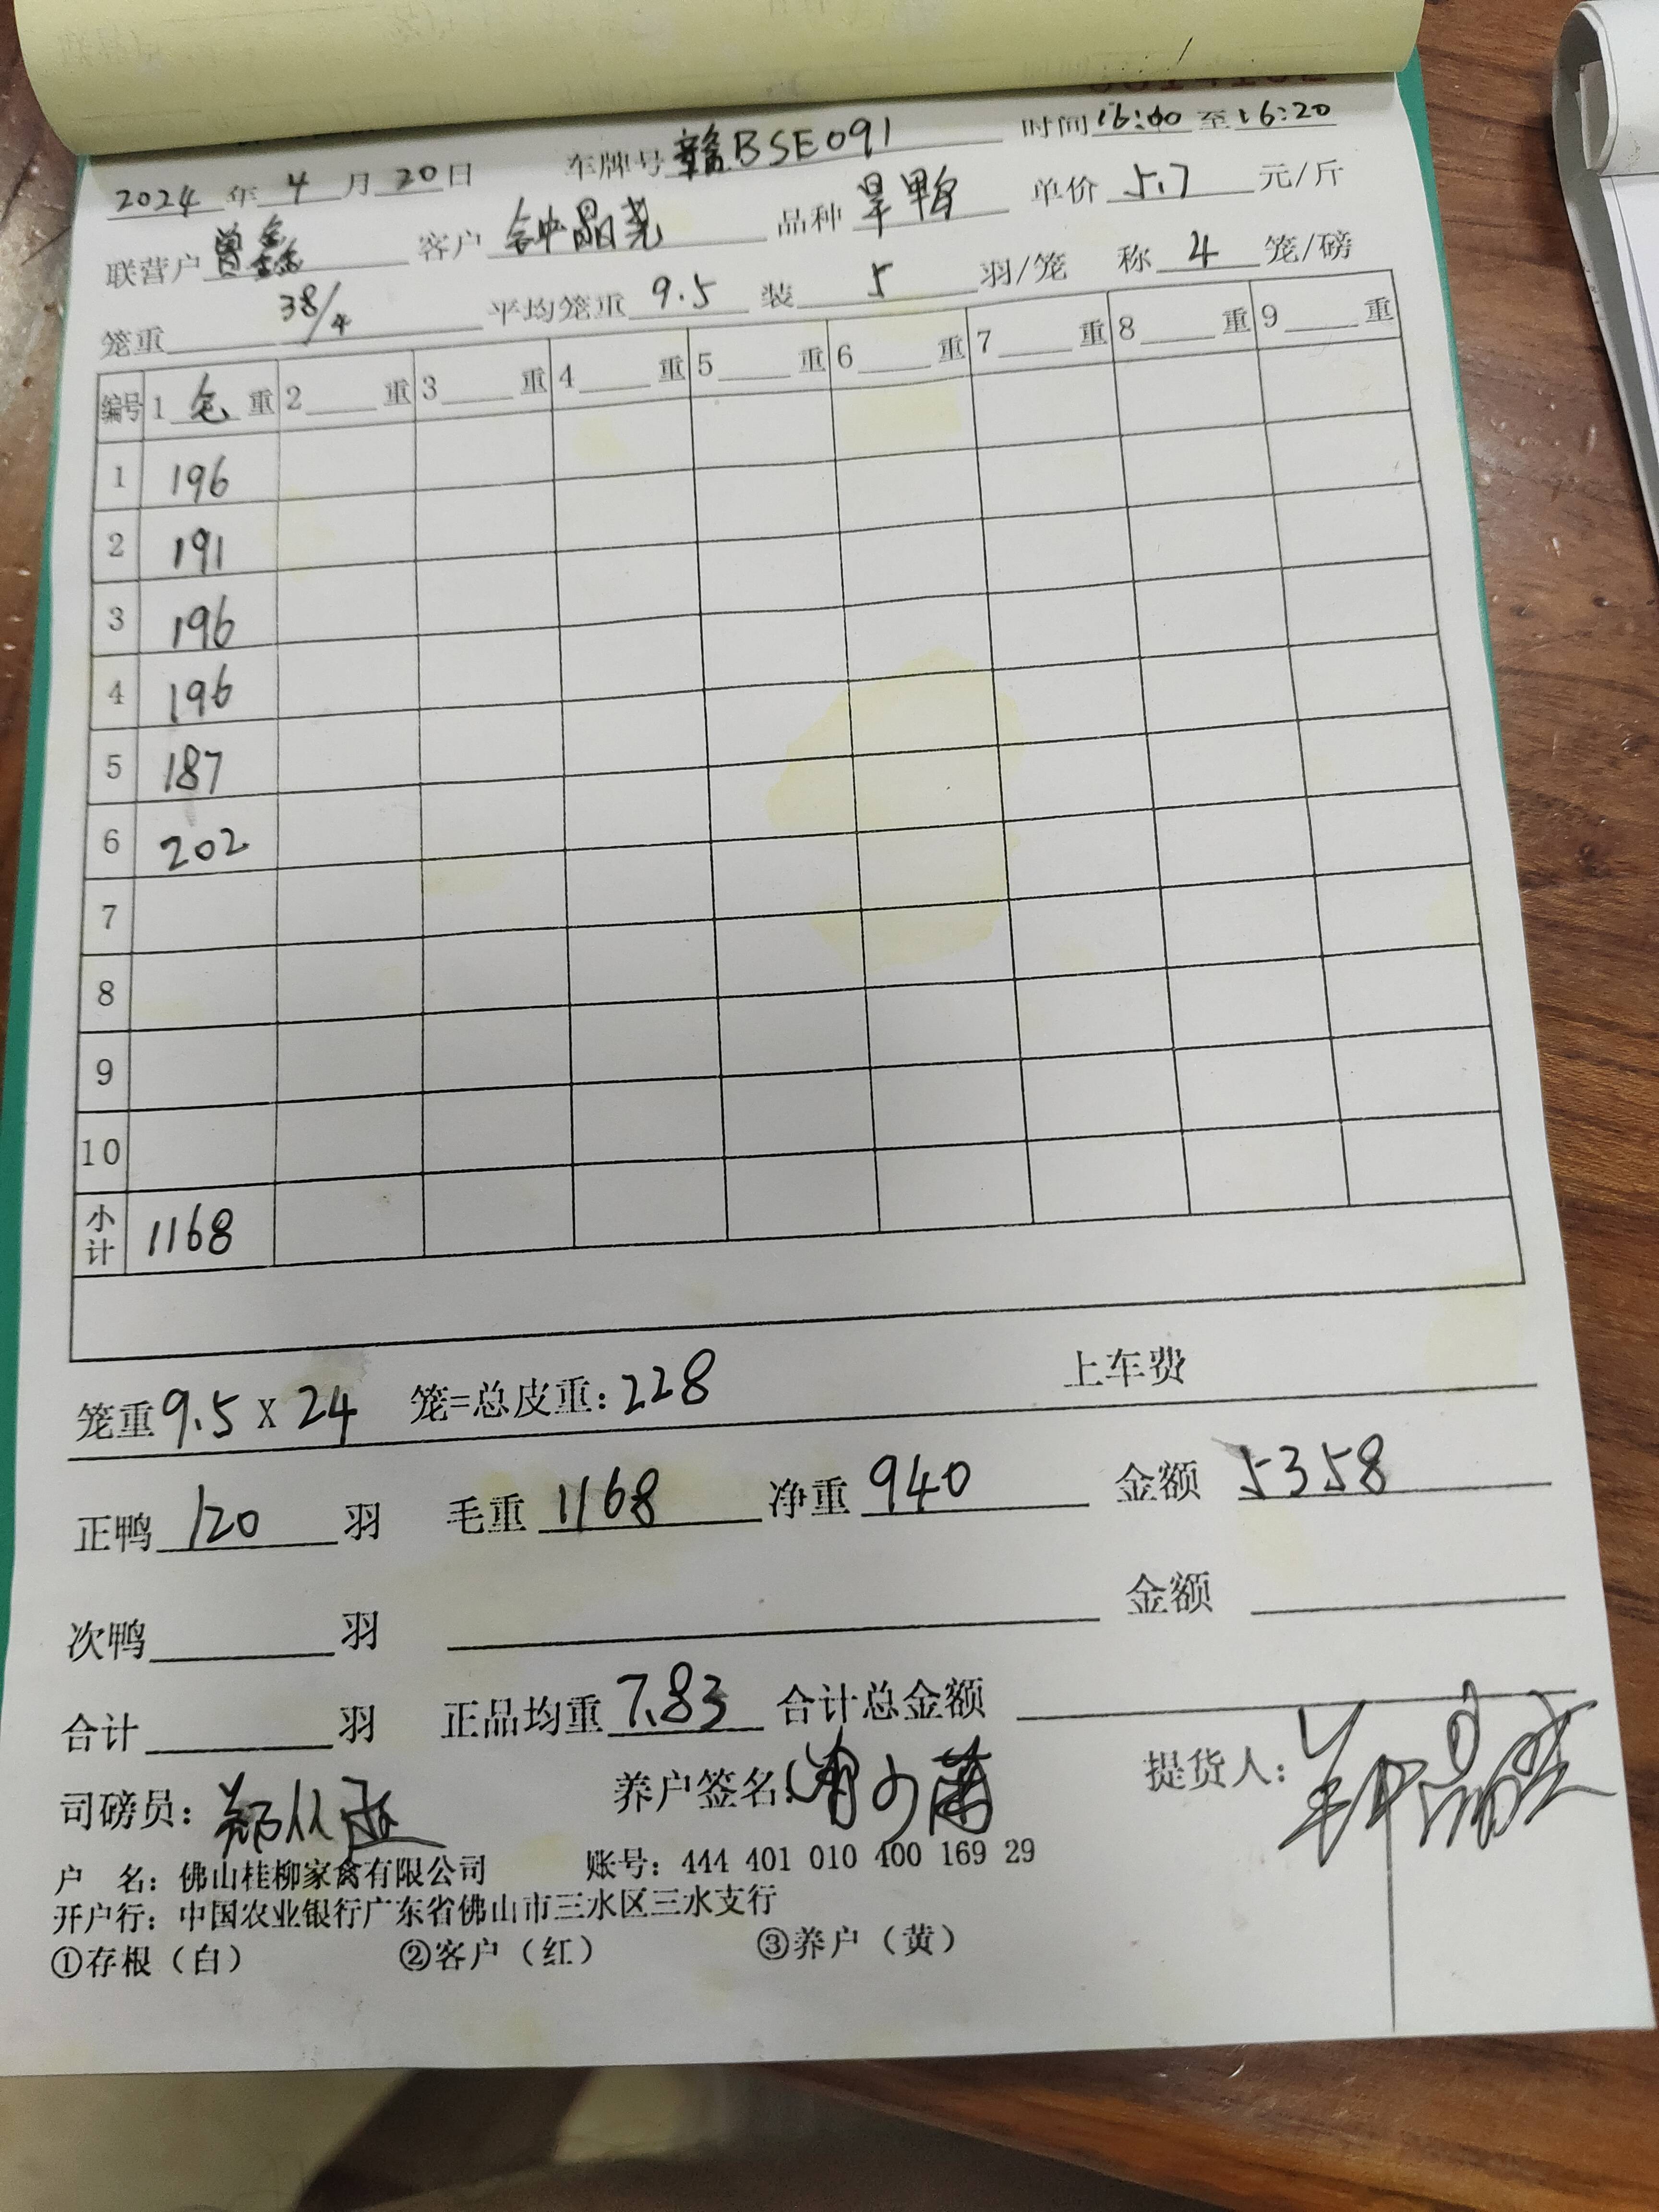 2024 年 4 月 20 日 车牌号 赣BSE091 时间 16:00 至 16:20
联营户 曾鑫 客户 钟晶尧 品种 旱鸭 单价 5.7 元/斤
笼重 38/4 平均笼重 9.5 装 5 羽/笼 称 4 笼/磅
编号 1 毛 重 2 重 3 重 4 重 5 重 6 重 7 重 8 重 9 重
1 196
2 191
3 196
4 196
5 187
6 202
7
8
9
10
小计 1168
笼重 9.5 x 24 笼=总皮重: 228 上车费
正鸭 120 羽 毛重 1168 净重 940 金额 5358
次鸭 羽 金额
合计 羽 正品均重 7.83 合计总金额
司磅员: 养户签名: 提货人:
户 名: 佛山桂柳家禽有限公司 账号: 444 401 010 400 169 29
开户行: 中国农业银行广东省佛山市三水区三水支行
①存根（白） ②客户（红） ③养户（黄）